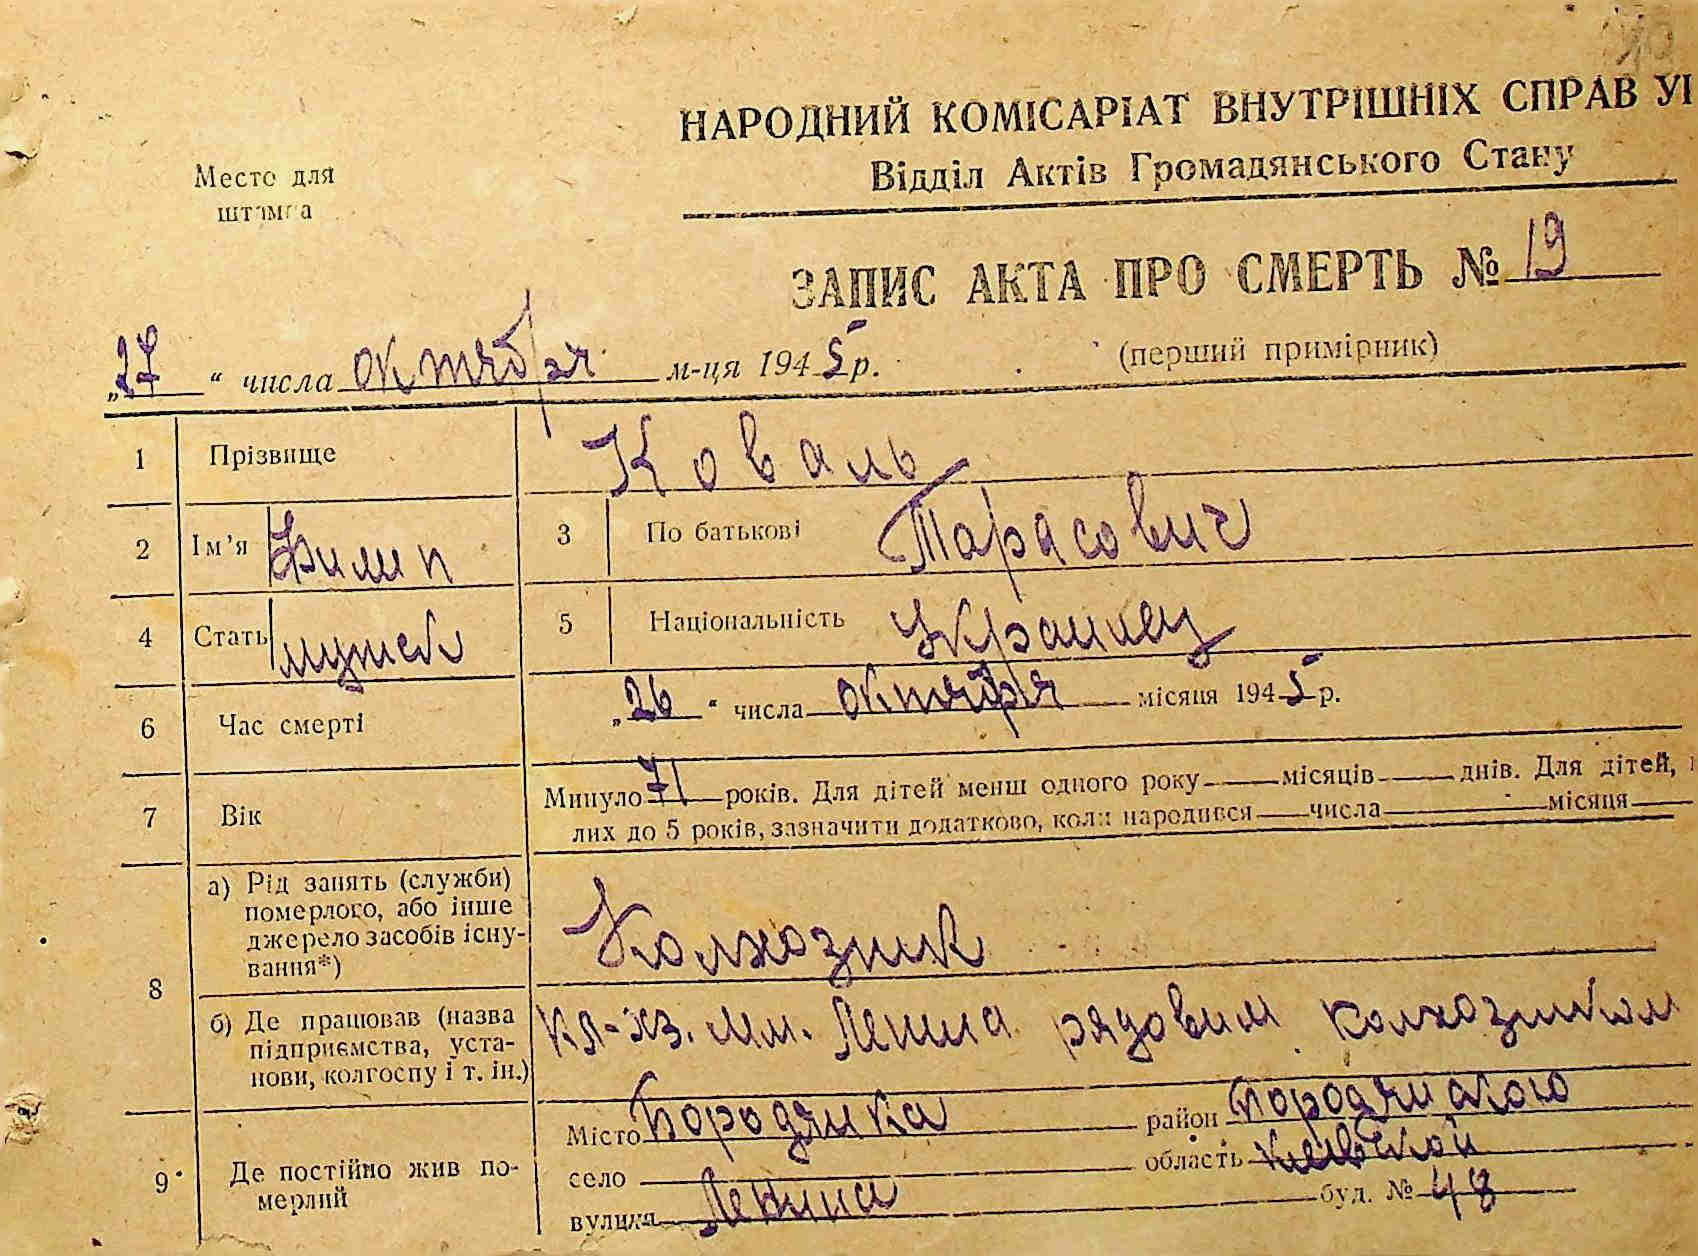 НАРОДНИЙ КОМІСАРІАТ ВНУТРІШНІХ СПРАВ УІ
Відділ Актів Громадянського Стану
Место для
штампа
ЗАПИС АКТА ПРО СМЕРТЬ № 19
(перший примірник)
„27“ числа октября м-ця 1945 р.
1 Прізвище Коваль
2 Ім’я Филип 3 По батькові Тарасович
4 Стать мужск 5 Національність Украинец
6 Час смерті „26“ числа октября місяця 1945 р.
7 Вік Минуло 71 років. Для дітей менш одного року місяців днів. Для дітей,
лих до 5 років, зазначити додатково, коли народився числа місяця
8 а) Рід занять (служби)
померлого, або інше
джерело засобів існу-
вання*)
Колхозник
б) Де працював (назва
підприємства, уста-
нови, колгоспу і т. ін.)
кл-хз. им. Ленина рядовим колхозником
9 Де постійно жив по-
мерлий
Місто Бородянка район Бородянского
село область Киевской
вулиця Ленина буд. № 48